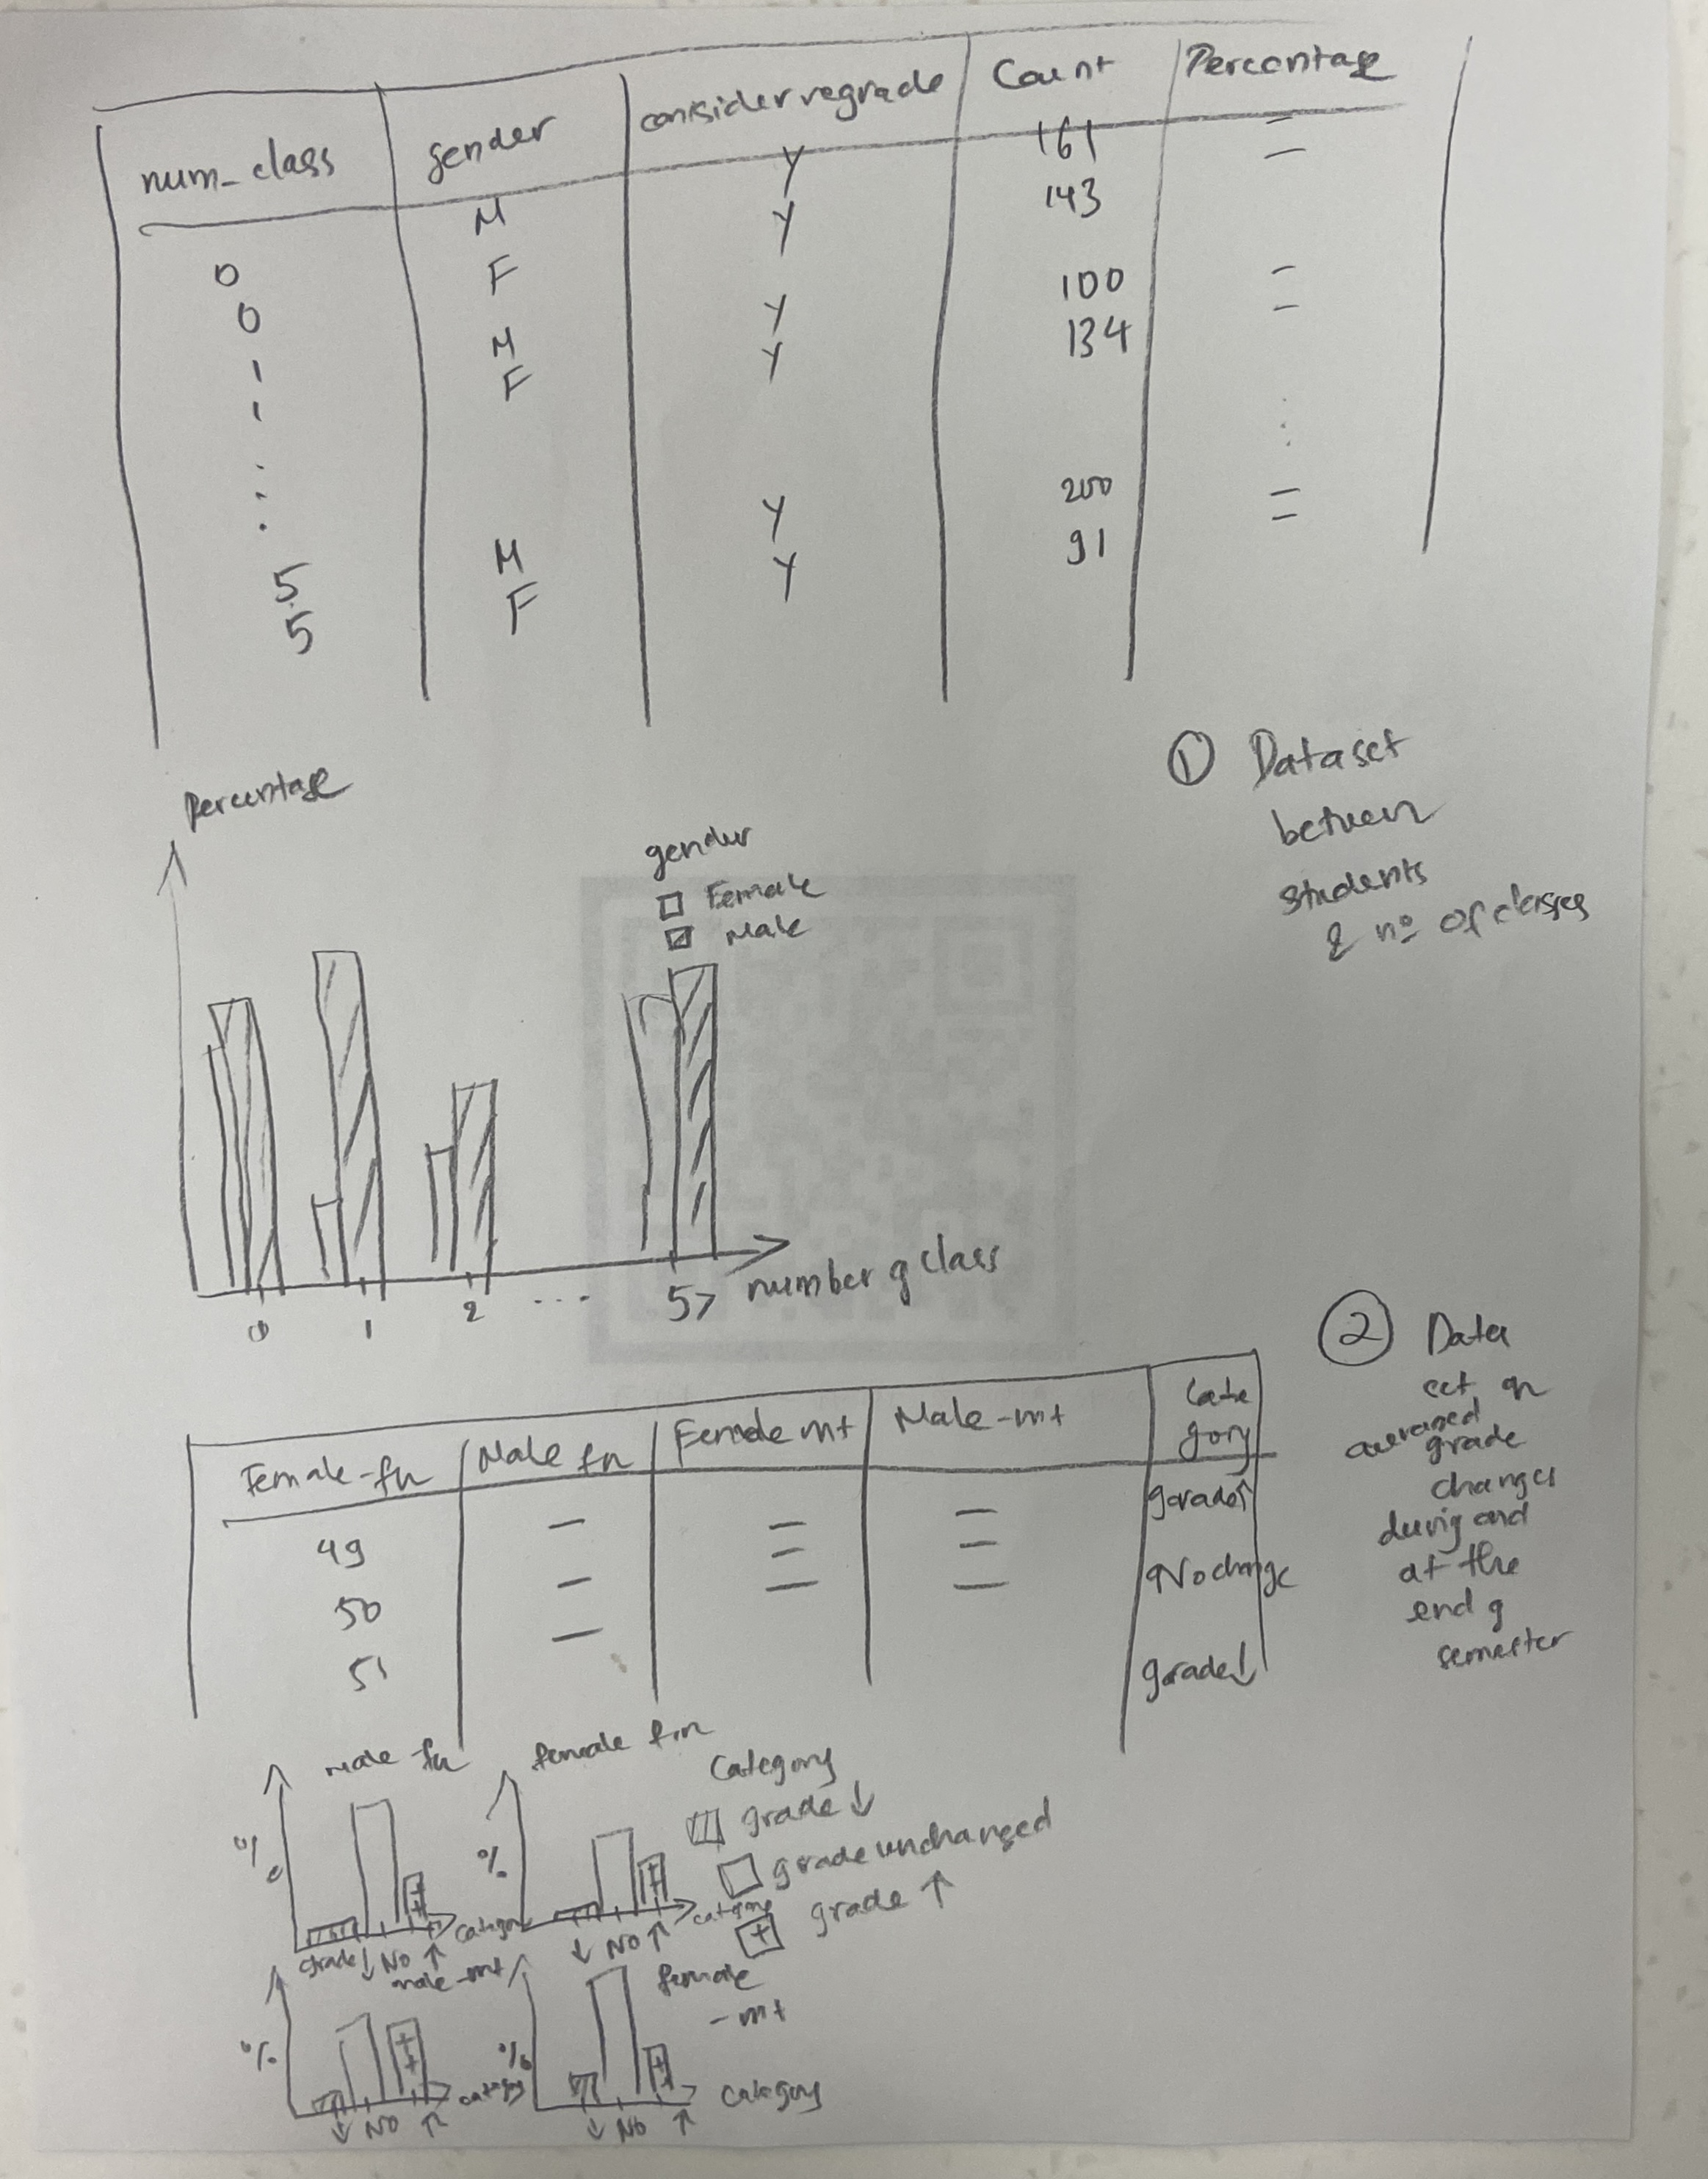 num_class gender considerregrade Count Percentage
0 M Y 161 –
0 F Y 143 –
1 M Y 100 –
1 F Y 134 –
5 M Y 200 –
5 F Y 91 –
① Dataset
between
students
& nº of classes
Percentage
gender
Female
Male
0 1 2 ... 5> number of class
② Data
set on
averaged
grade
changes
during and
at the
end of
semester
Female-fn Male fn Female mt Male-mt Cate
gory
49 – – – grade↑
50 – – – No change
51 – – – grade↓
Male fn
%
grade↓ No ↑ category
female fin
%
↓ No ↑ category
Category
grade ↓
grade unchanged
grade ↑
male-mt
%
↓ No ↑ category
female
-mt
%
↓ No ↑ category